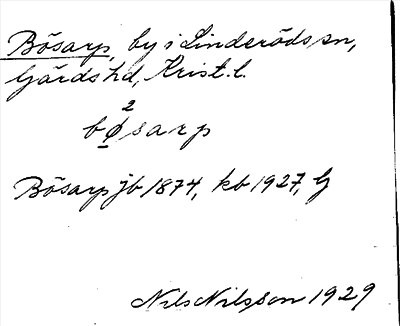 Bösarp, by i Linderöds sn,
Gärds hd, Krist. l.
2
bøsarp
Bösarp jb 1874, kb 1927, G
Nils Nilsson 1929